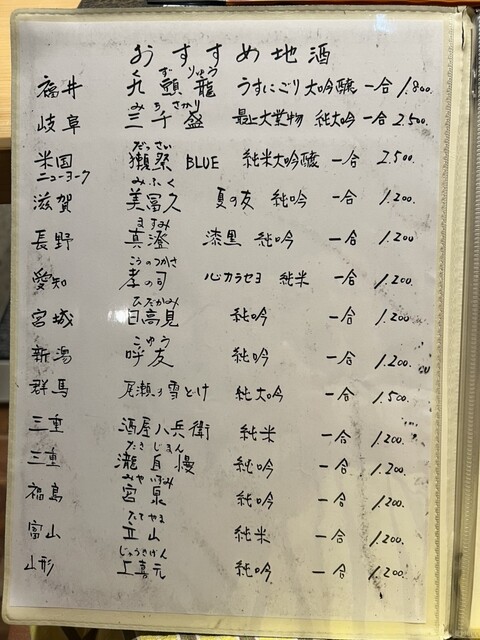 おすすめ地酒
くずりゅう
福井 九頭龍 うすにごり 大吟醸 一合 1.800.
みちさかり
岐阜 三千盛 最上大業物 純大吟 一合 2.500.
だっさい
米国 獺祭 BLUE 純米大吟醸 一合 2.500.
ニューヨーク
みふく
滋賀 美冨久 夏の友 純吟 一合 1.200.
ますみ
長野 真澄 漆黒 純吟 一合 1.200
こうのつかさ
愛知 孝の司 心カラセヨ 純米 一合 1.200.
ひだかみ
宮城 日高見 純吟 一合 1.200.
こゆう
新潟 呼友 純吟 一合 1.200.
群馬 尾瀬の雪どけ 純大吟 一合 1.500.
三重 酒屋八兵衛 純米 一合 1.200.
たきじまん
三重 瀧自慢 純吟 一合 1.200.
みやいずみ
福島 宮泉 純吟 一合 1.200.
たてやま
富山 立山 純米 一合 1.200.
じょうきげん
山形 上喜元 純吟 一合 1.200.